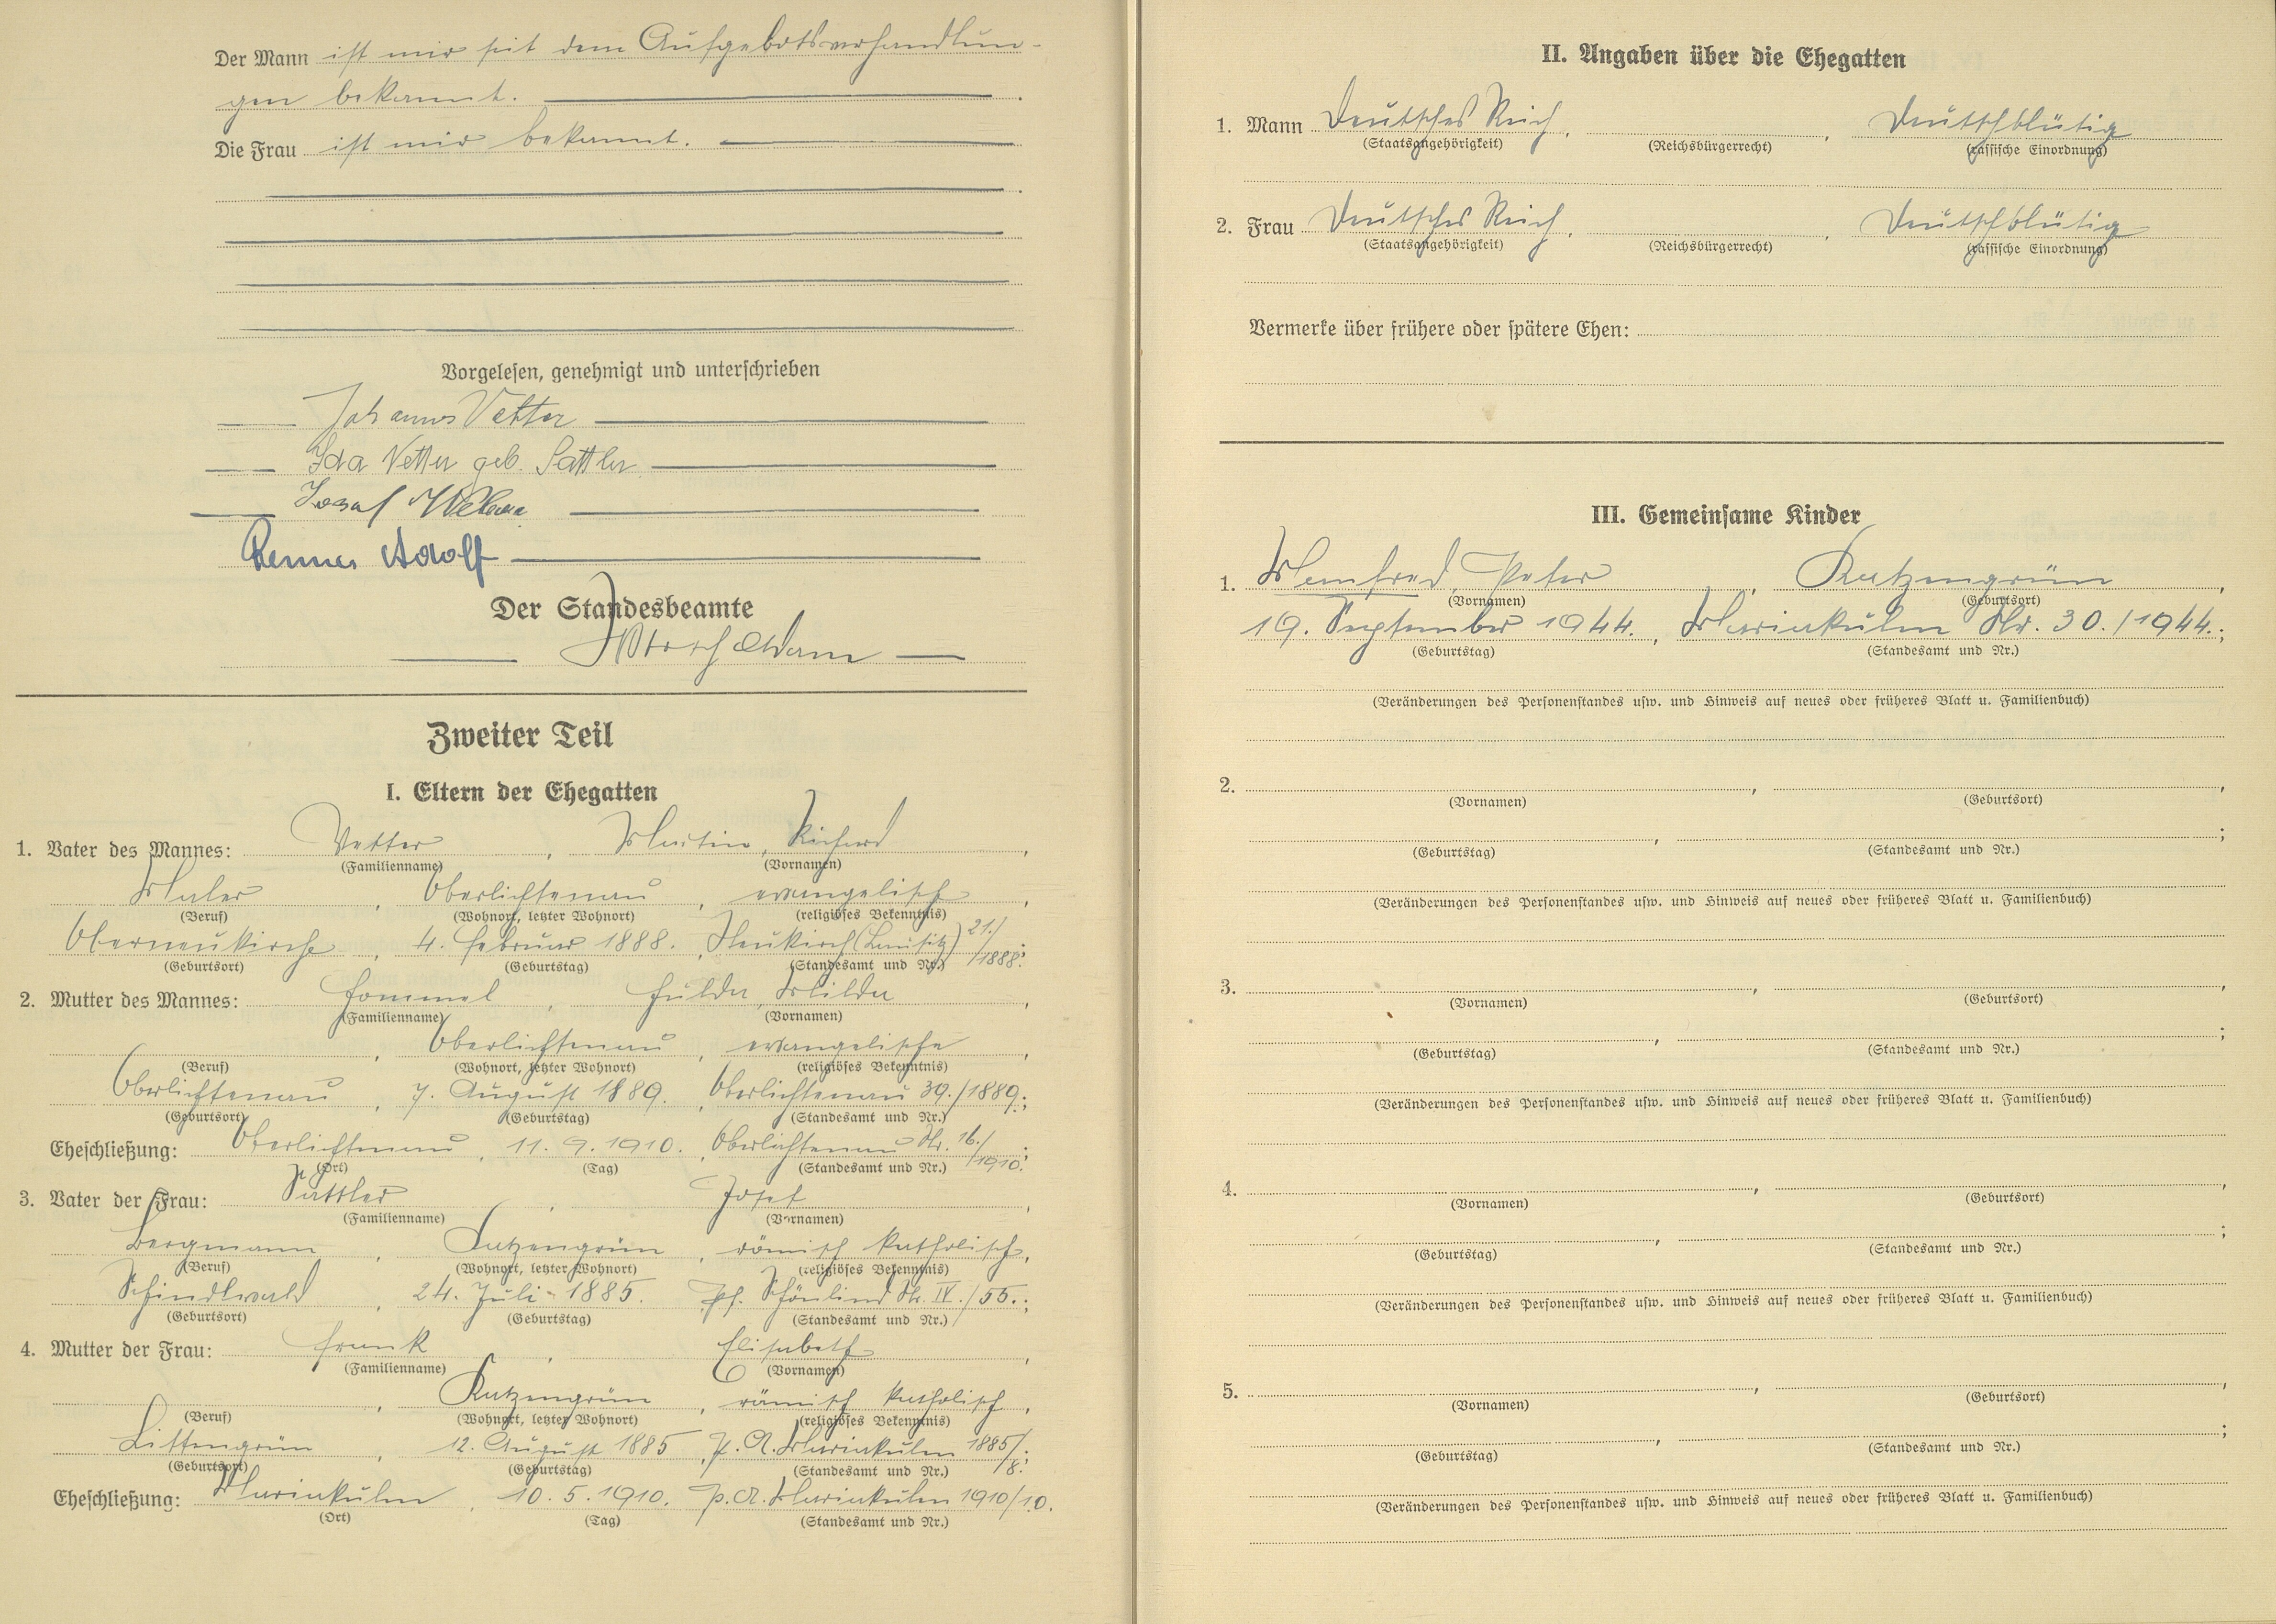 Der Mann ist mir seit dem Aufgebotsverhandlun-
gen bekannt.
Die Frau ist mir bekannt.
Vorgelesen, genehmigt und unterschrieben
Johannes Vetter
Ida Vetter geb. Sattler
Josef
Renner Adolf
Der Standesbeamte
Zweiter Teil
I. Eltern der Ehegatten
1. Vater des Mannes: Vetter, Martin, Richard,
(Familienname) (Vornamen)
Maler, Oberlichtenau, evangelisch,
(Beruf) (Wohnort, letzter Wohnort) (religiöses Bekenntnis)
Oberneukirche, 4. Februar 1888., Neukirch (Lausitz) 21./1888.;
(Geburtsort) (Geburtstag) (Standesamt und Nr.)
2. Mutter des Mannes: Hommel, Hulda, Milda,
(Familienname) (Vornamen)
, Oberlichtenau, evangelische,
(Beruf) (Wohnort, letzter Wohnort) (religiöses Bekenntnis)
Oberlichtenau, 7. August 1889., Oberlichtenau 39./1889.;
(Geburtsort) (Geburtstag) (Standesamt und Nr.)
Eheschließung: Oberlichtenau, 11. 9. 1910., Oberlichtenau Nr. 16./1910.;
(Ort) (Tag) (Standesamt und Nr.)
3. Vater der Frau: Sattler, Josef,
(Familienname) (Vornamen)
Bergmann, Katzengrün, römisch katholisch,
(Beruf) (Wohnort, letzter Wohnort) (religiöses Bekenntnis)
Schindlwald, 24. Juli 1885., Pf. Schönlind Nr. IV./55.;
(Geburtsort) (Geburtstag) (Standesamt und Nr.)
4. Mutter der Frau: Frank, Elisabeth,
(Familienname) (Vornamen)
, Katzengrün, römisch katholisch,
(Beruf) (Wohnort, letzter Wohnort) (religiöses Bekenntnis)
Littengrün, 12. August 1885, P. A. Mariakulm 1885/8.;
(Geburtsort) (Geburtstag) (Standesamt und Nr.)
Eheschließung: Mariakulm, 10. 5. 1910. P. A. Mariakulm 1910/10.
(Ort) (Tag) (Standesamt und Nr.)
II. Angaben über die Ehegatten
1. Mann Deutsches Reich, , Deutschblütig
(Staatsangehörigkeit) (Reichsbürgerrecht) (rassische Einordnung)
2. Frau Deutsches Reich, , Deutschblütig
(Staatsangehörigkeit) (Reichsbürgerrecht) (rassische Einordnung)
Vermerke über frühere oder spätere Ehen:
III. Gemeinsame Kinder
1. Manfred Peter, Katzengrün,
(Vornamen) (Geburtsort)
19. September 1944., Mariakulm Nr. 30./1944.;
(Geburtstag) (Standesamt und Nr.)
(Veränderungen des Personenstandes usw. und Hinweis auf neues oder früheres Blatt u. Familienbuch)
2. , ,
(Vornamen) (Geburtsort)
, ;
(Geburtstag) (Standesamt und Nr.)
(Veränderungen des Personenstandes usw. und Hinweis auf neues oder früheres Blatt u. Familienbuch)
3. , ,
(Vornamen) (Geburtsort)
, ;
(Geburtstag) (Standesamt und Nr.)
(Veränderungen des Personenstandes usw. und Hinweis auf neues oder früheres Blatt u. Familienbuch)
4. , ,
(Vornamen) (Geburtsort)
, ;
(Geburtstag) (Standesamt und Nr.)
(Veränderungen des Personenstandes usw. und Hinweis auf neues oder früheres Blatt u. Familienbuch)
5. , ,
(Vornamen) (Geburtsort)
, ;
(Geburtstag) (Standesamt und Nr.)
(Veränderungen des Personenstandes usw. und Hinweis auf neues oder früheres Blatt u. Familienbuch)